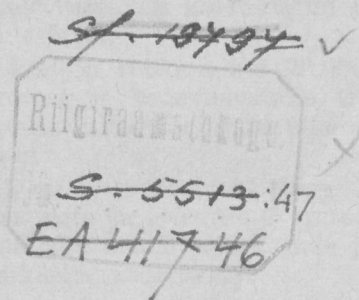 Sf. 19797
Riigiraamatukogu
S. 5513:47
EA 41746